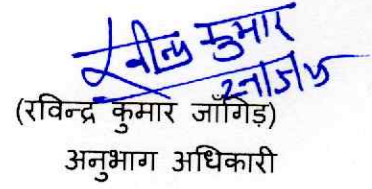 रवीन्द्र कुमार
(रविन्द्र कुमार जाँगिड़)
अनुभाग अधिकारी